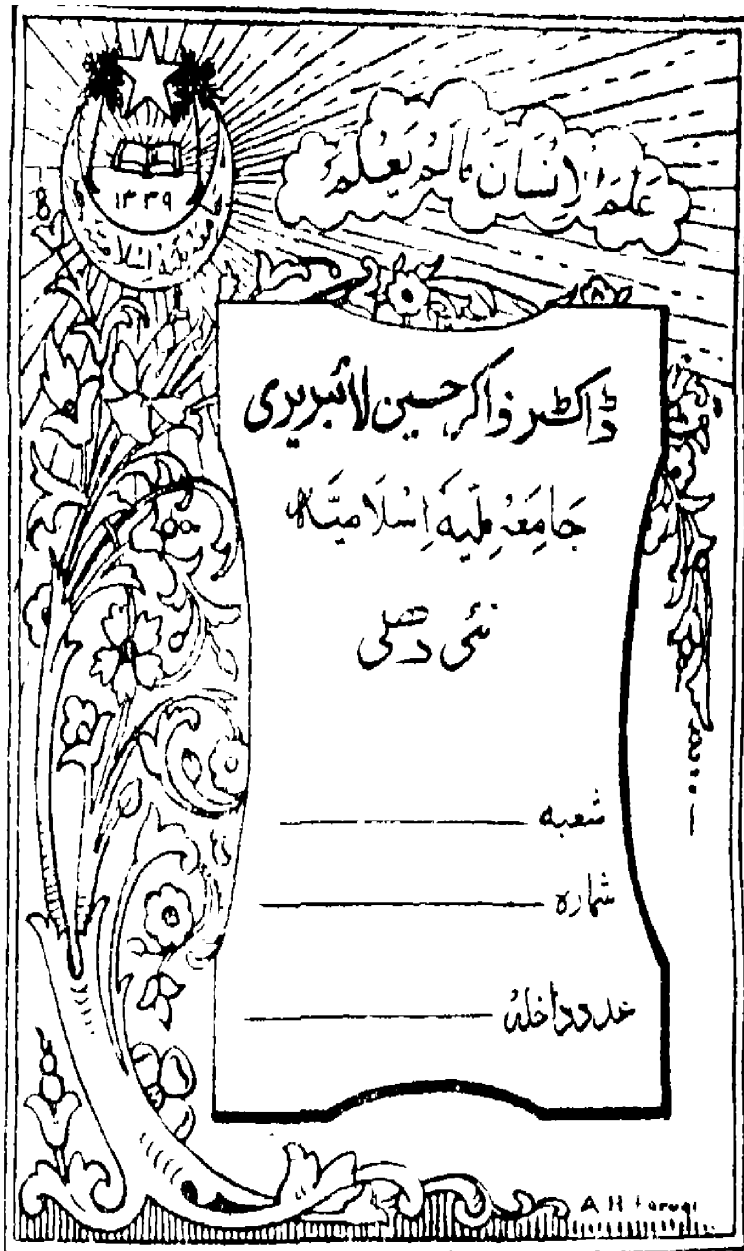 عَلَّمَ الْاِنْسَانَ مَالَمْ يَعْلَمْ
۱۳۳۹
ڈاکٹر ذاکر حسین لائبریری
جَامِعَہ مِلّیہ اِسْلَامیَّہ
نئی دھلی
شعبہ
شمارہ
عدد داخلہ
A H Faruqi